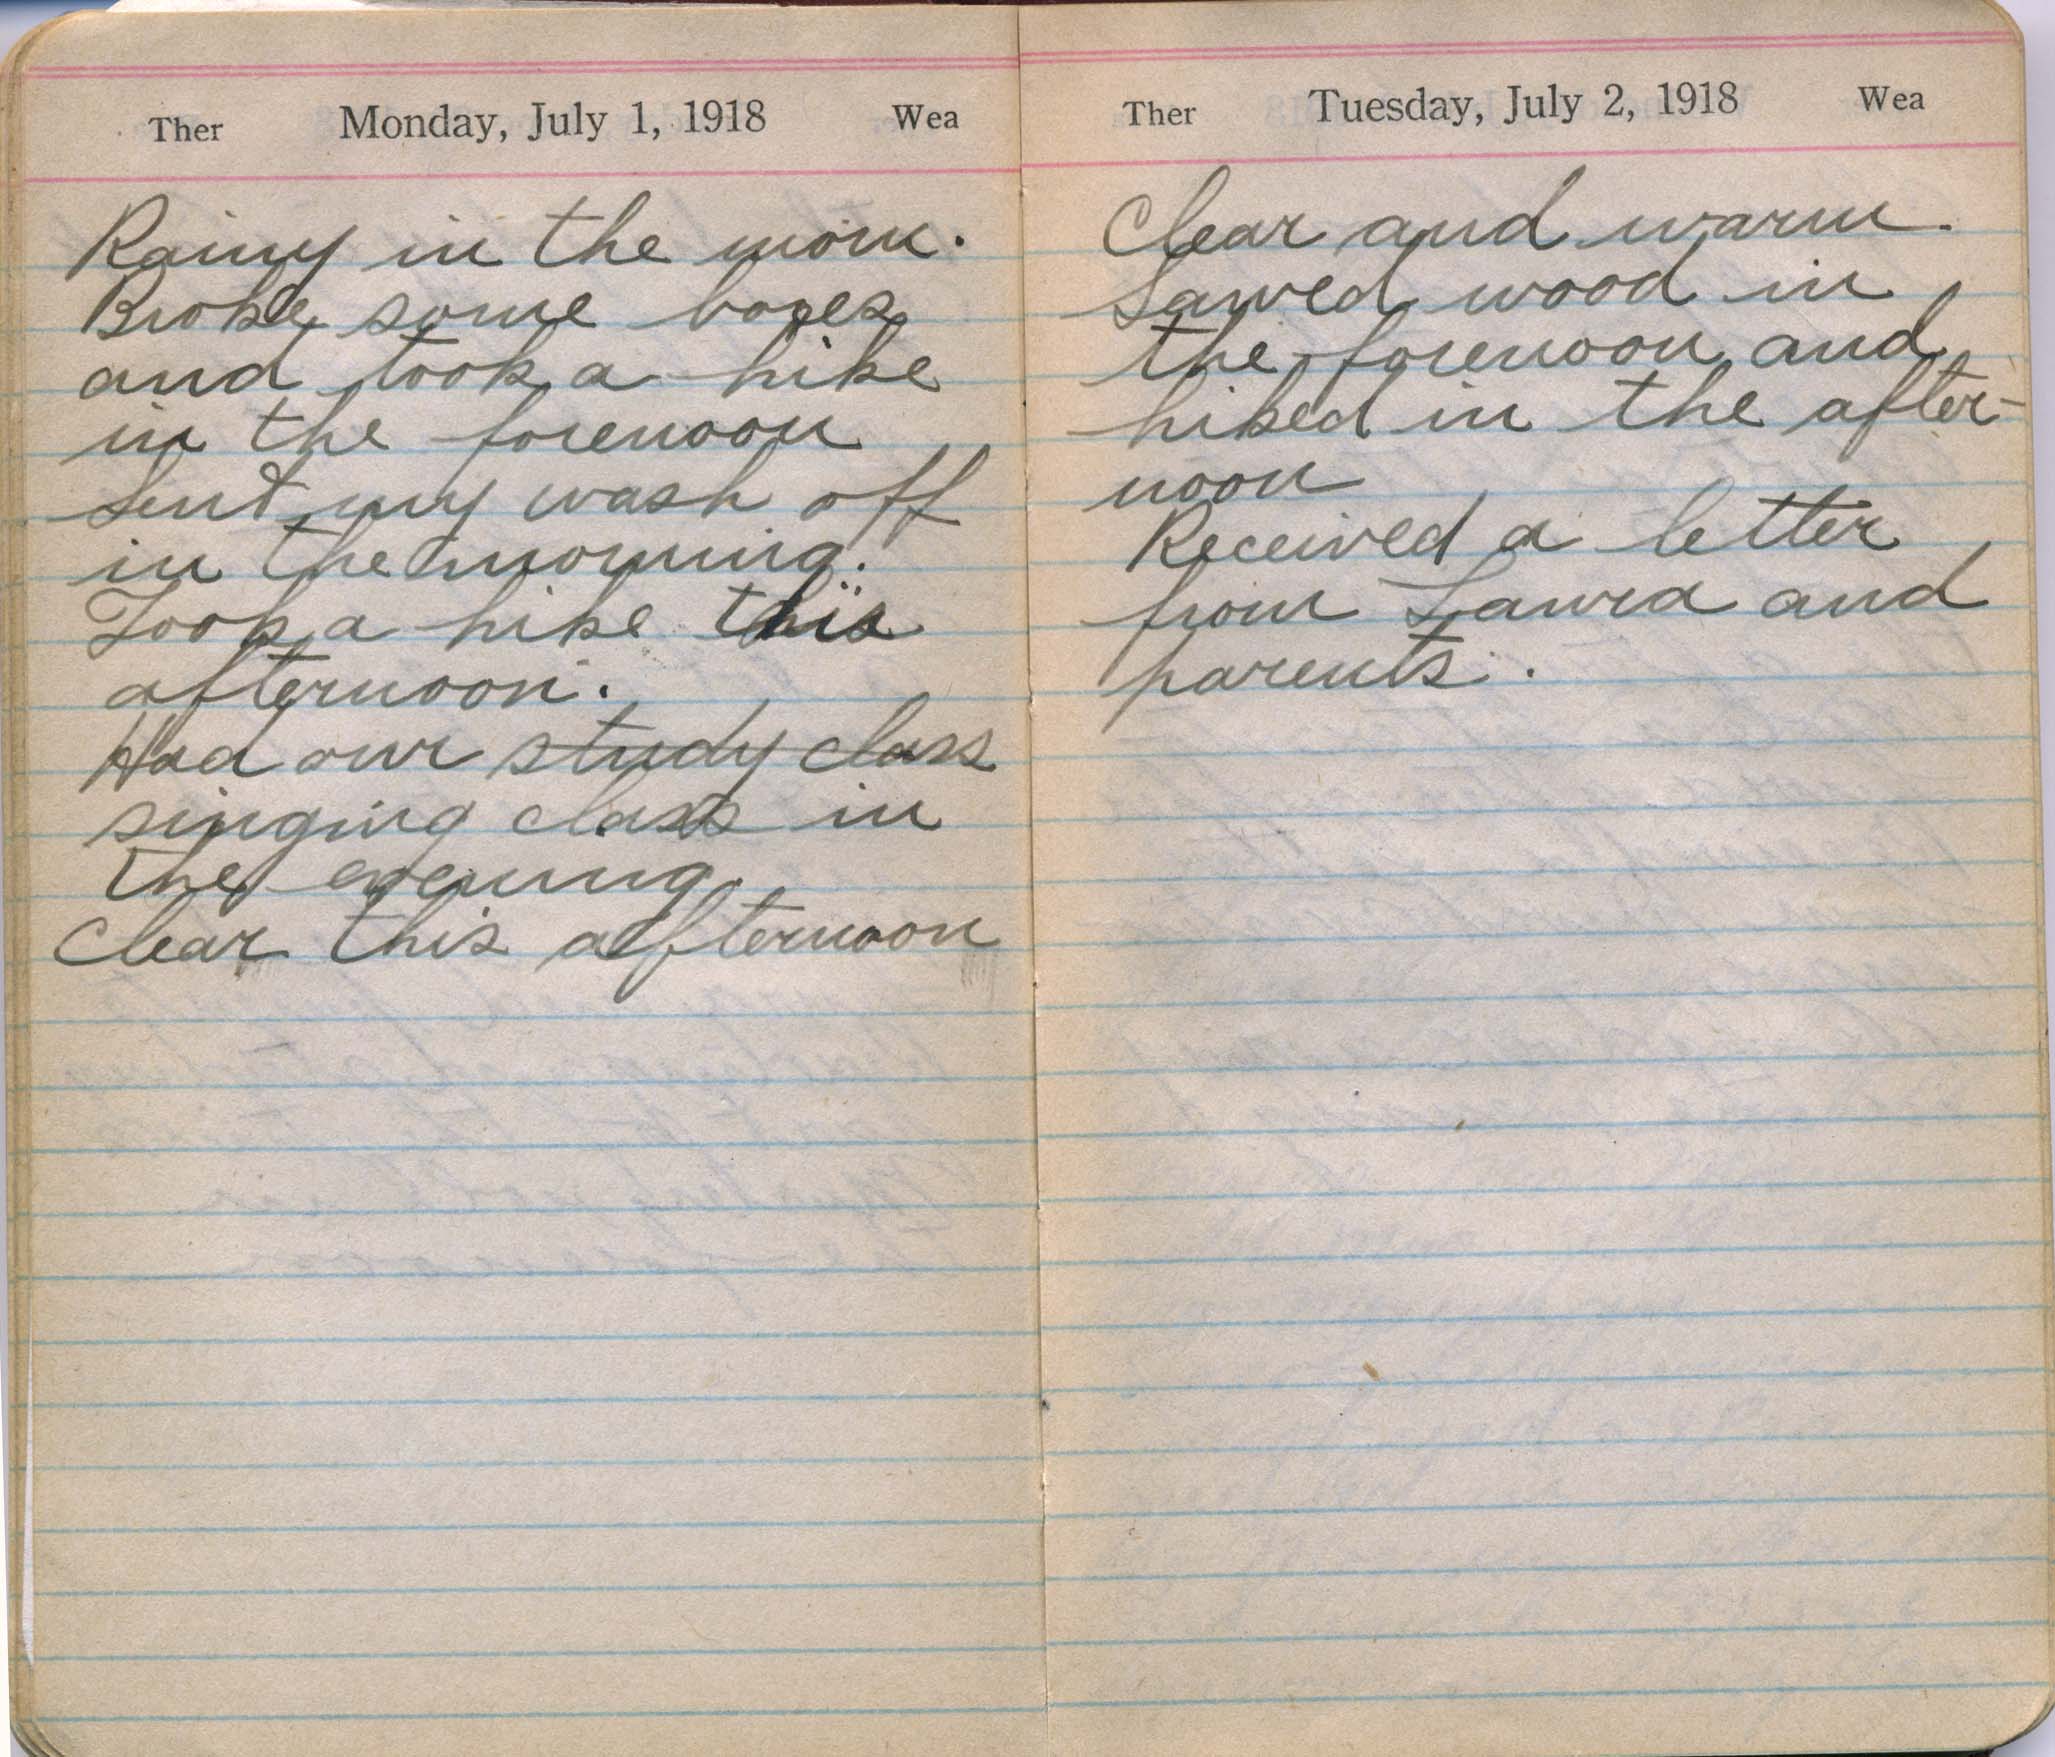 Ther Monday, July 1, 1918 Wea
Rainy in the morn.
Broke some boxes
and took a hike
in the forenoon
Sent my wash off
in the morning.
Took a hike this
afternoon.
Had our study class
singing class in
the evening.
Clear this afternoon
Ther Tuesday, July 2, 1918 Wea
Clear and warm.
Sawed wood in
the forenoon and
hiked in the after-
noon
Received a letter
from Laura and
parents.